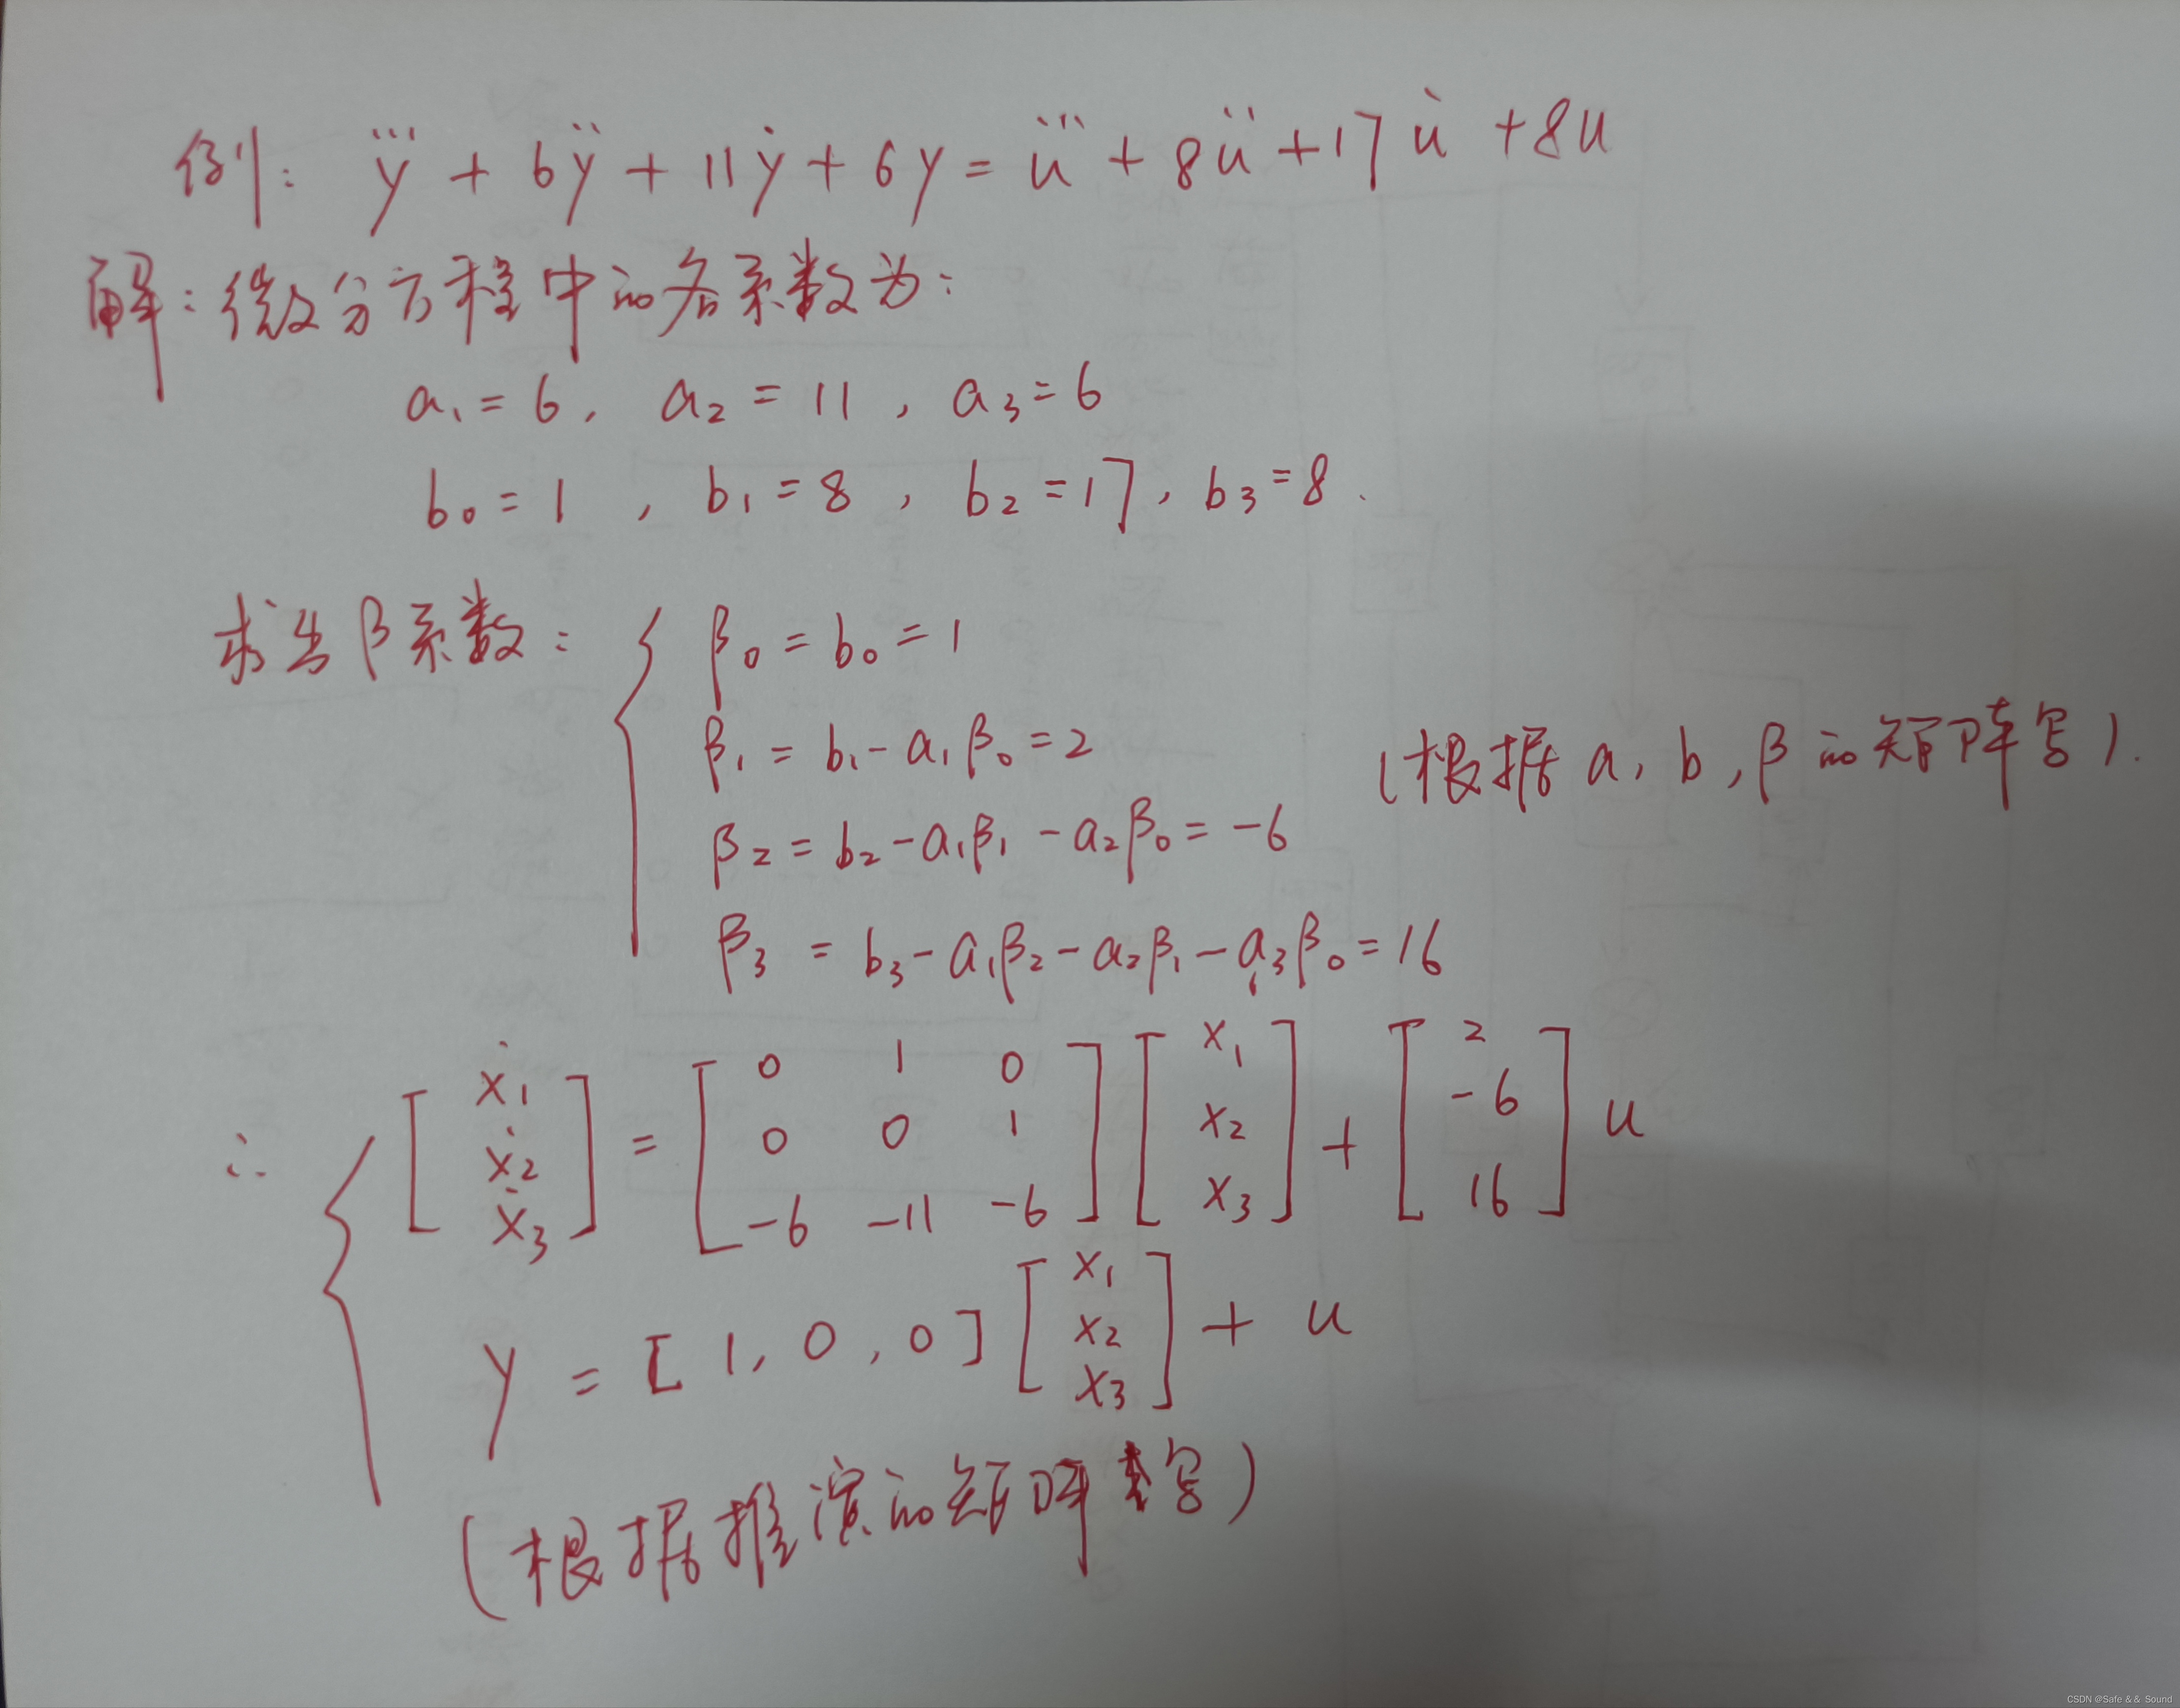 例: y⃛ + 6ÿ + 11ẏ + 6y = u⃛ + 8ü + 17u̇ + 8u
解: 微分方程中的各系数为:
a₁ = 6, a₂ = 11, a₃ = 6
b₀ = 1, b₁ = 8, b₂ = 17, b₃ = 8.
求出β系数:
β₀ = b₀ = 1
β₁ = b₁ - a₁β₀ = 2
(根据a, b, β的矩阵写).
β₂ = b₂ - a₁β₁ - a₂β₀ = -6
β₃ = b₃ - a₁β₂ - a₂β₁ - a₃β₀ = 16
∴ { [ẋ₁ ẋ₂ ẋ₃] = [0 1 0; 0 0 1; -6 -11 -6] [x₁ x₂ x₃] + [2 -6 16] u
y = [1, 0, 0] [x₁ x₂ x₃] + u
(根据推演的矩阵写)
CSDN @Safe & & Sound